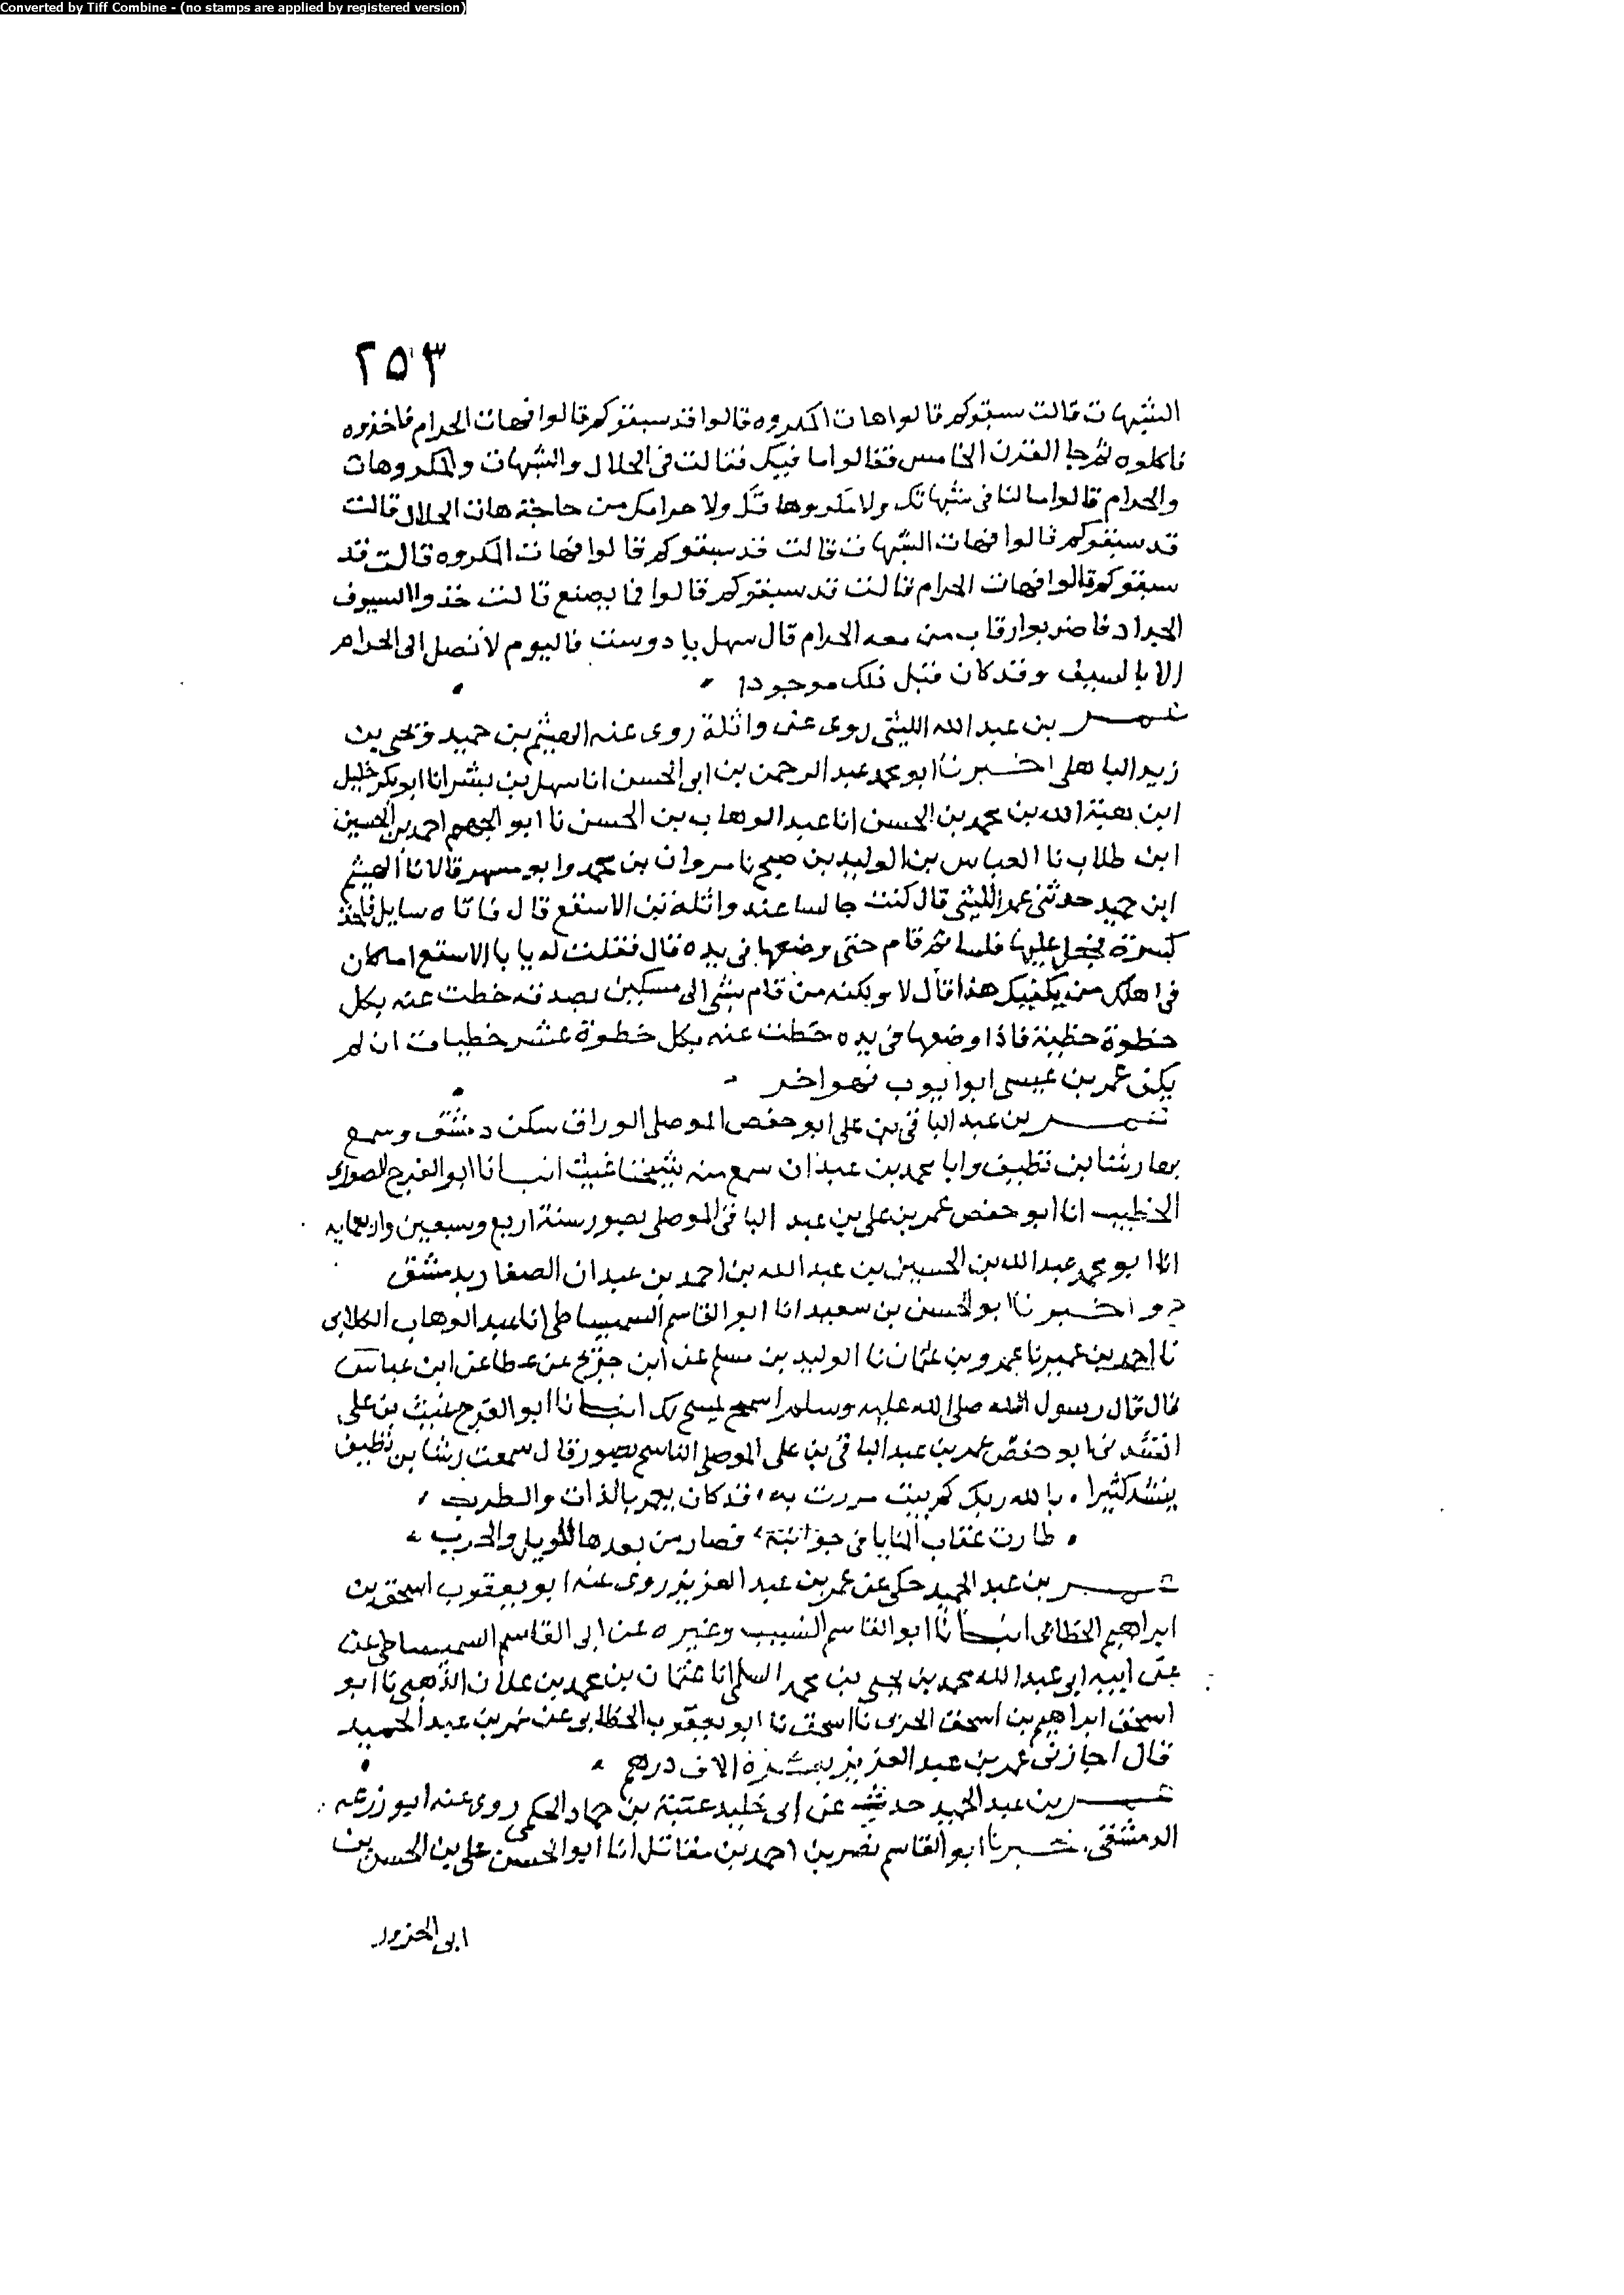 Converted by Tiff Combine - (no stamps are applied by registered version)
٢٥٣
الشبهات قالت سبقوكم قالوا هات المكروه قالوا قد سبقوكم قالوا فهات الحرام فاخذوه
فاكلوه ثم جا القرن الخامس فقالوا ما فيك فقالت في الحلال والشبهات والمكروهات
والحرام قالوا ما لنا في شبهاتك ولا مكروهاتك ولا حرامك من حاجة هات الحلال قالت
قد سبقوكم قالوا فهات الشبهات قالت قد سبقوكم قالوا فهات المكروه قالت قد
سبقوكم قالوا فهات الحرام قالت قد سبقوكم قالوا فما يصنع قالت خذوا السيوف
الحداد فاضربوا رقاب من معه الحرام قال سهل يا دوست فاليوم لا نصل الى الحرام
الا بالسيف وقد كان قبل ذلك موجودا
عمر بن عبد الله الليثي روى عن واثلة روى عنه الهيثم بن حميد ويحيى بن
زيد الباهلي اخبرنا ابو محمد عبد الرحمن بن ابي الحسن انا سهل بن بشر انا ابو بكر خليل
ابن هبة الله بن محمد بن الحسن انا عبد الوهاب بن الحسن نا ابو الجهم احمد بن الحسين
ابن طلاب نا العباس بن الوليد بن صبح نا مروان بن محمد وابو مسهر قالا نا الهيثم
ابن حميد حدثني عمر الليثي قال كنت جالسا عند واثلة بن الاسقع قال فاتاه سايل فاخذ
كسرة فجعل عليها فلسا ثم قام حتى وضعها في يده قال فقلت له يا با الاسقع اما كان
في اهلك من يكفيك هذا قال لا ولكنه من قام بشي الى مسكين بصدقه حطت عنه بكل
خطوة خطية فاذا وضعها في يده حطت عنه بكل خطوة عشر خطيات ان لم
يكن عمر بن عيسى ابو ايوب فهو اخر
عمر بن عبد الباقي بن علي ابو حفص الموصلي الوراق سكن دمشق وسمع
بها رشا بن نظيف وابا محمد بن عبدان سمع منه شيخنا غيث انبانا ابو الفرج الصوري
الخطيب انا ابو حفص عمر بن علي بن عبد الباقي الموصلي بصور سنة اربع وسبعين واربعمايه
انا ابو محمد عبد الله بن الحسين بن عبد الله بن احمد بن عبدان الصفار بدمشق
ح واخبرنا ابو الحسن بن سعيد انا ابو القاسم السميساطي انا عبد الوهاب الكلابي
نا احمد بن عمير نا عمرو بن عثمان نا الوليد بن مسلم عن ابن جريج عن عطا عن ابن عباس
قال قال رسول الله صلى الله عليه وسلم اسمح يسمح لك انبانا ابو الفرج غيث بن علي
انشدنا ابو حفص عمر بن عبد الباقي بن علي الموصلي الناسخ بصور قال سمعت رشا بن نظيف
ينشد كثيرا بالله ربك كم بيت مررت به قد كان يعمر بالذات والطرب
طارت عقاب المنايا في جوانبه فصار من بعدها للويل والحرب
عمر بن عبد الحميد حكى عن عمر بن عبد العزيز روى عنه ابو يعقوب اسحق بن
ابراهيم الخطابي انبانا ابو القاسم النسيب وغيره عن ابي القاسم السميساطي عن
عن ابيه ابي عبد الله محمد بن يحيى بن محمد السلمي انا عثمان بن محمد بن علان الذهبي نا ابو
اسحق ابراهيم بن اسحق الحربي نا اسحق نا ابو يعقوب الخطابي عن عمر بن عبد الحميد
قال اجازني عمر بن عبد العزيز بعشرة الاف درهم
عمر بن عبد الحميد حدث عن ابي خليد عتبة بن حماد الحكمي روى عنه ابو زرعه
الدمشقي اخبرنا ابو القاسم نصر بن احمد بن مقاتل انا ابو الحسن علي بن الحسن بن
ابي الحزور